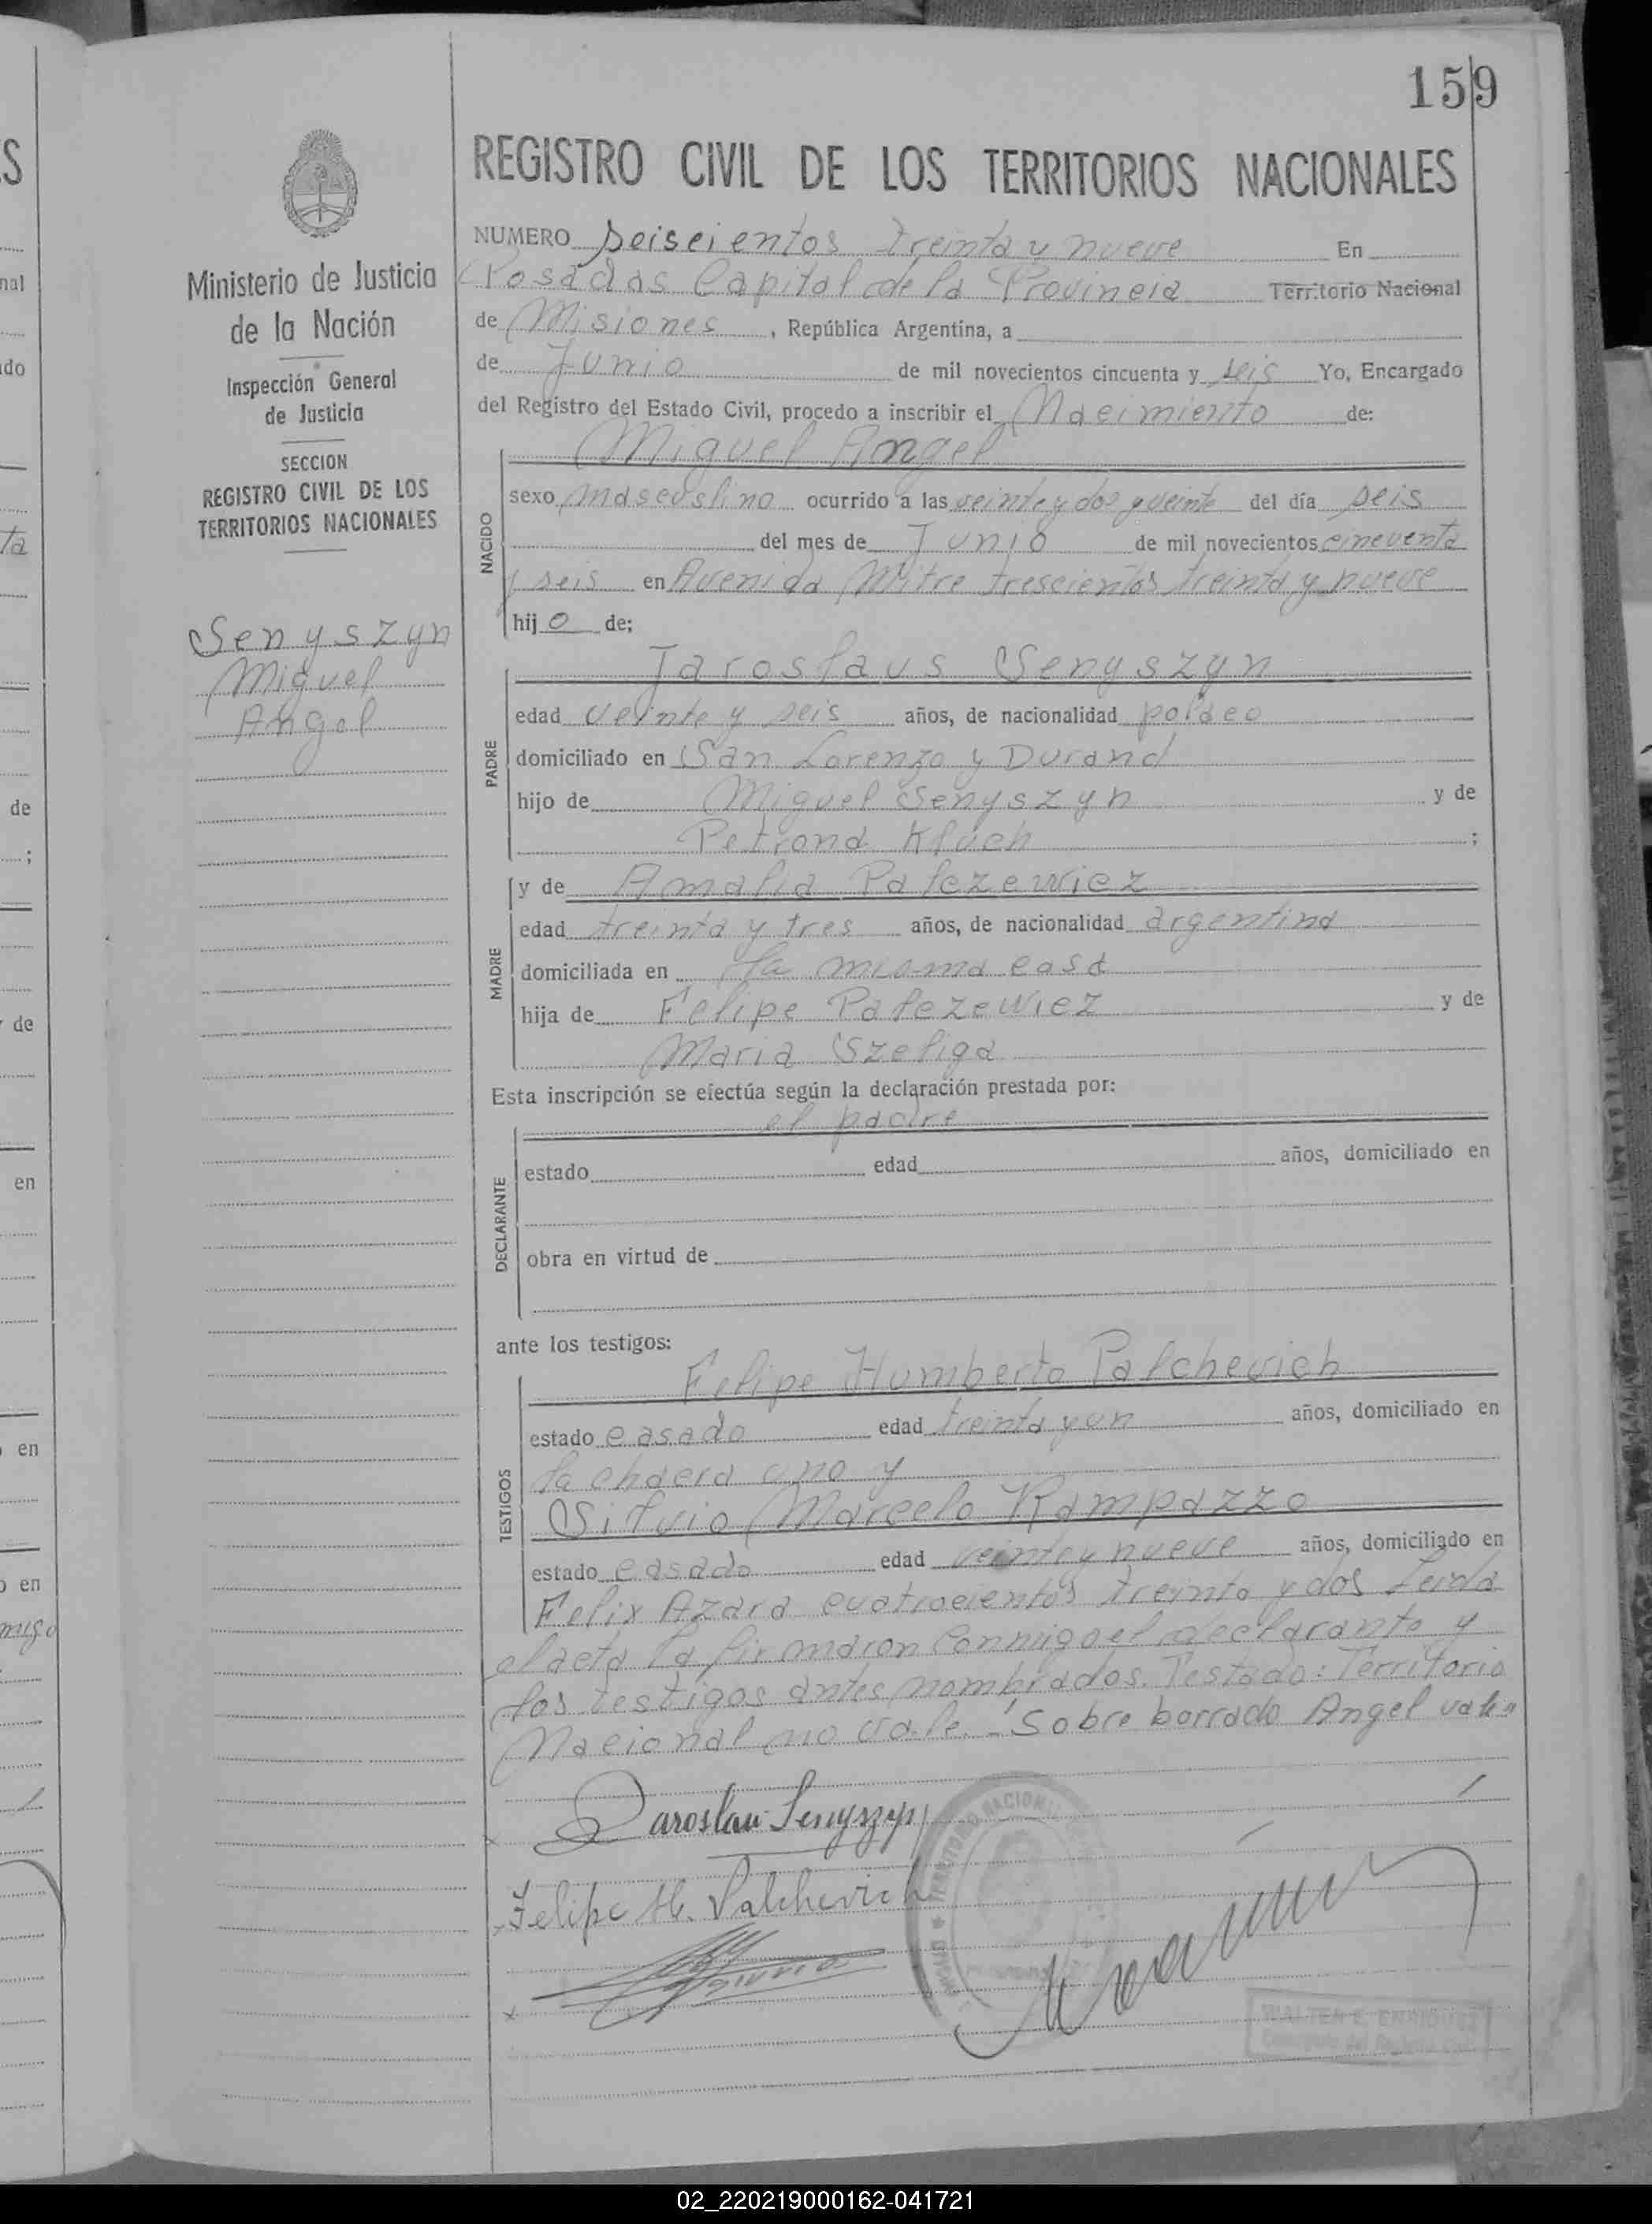 159
REGISTRO CIVIL DE LOS TERRITORIOS NACIONALES
Ministerio de Justicia
de la Nación
Inspección General
de Justicia
SECCION
REGISTRO CIVIL DE LOS
TERRITORIOS NACIONALES
Senyszyn
Miguel
Angel
NUMERO Seiscientos treinta y nueve En
Posadas Capital de la Provincia Territorio Nacional
de Misiones, República Argentina, a
de Junio de mil novecientos cincuenta y seis Yo, Encargado
del Registro del Estado Civil, procedo a inscribir el Nacimiento de:
Miguel Angel
NACIDO
sexo masculino ocurrido a las veinte y dos y veinte del día seis
del mes de Junio de mil novecientos cincuenta
y seis en Avenida Mitre trescientos treinta y nueve
hijo de;
Jaroslaus Senyszyn
PADRE
edad veinte y seis años, de nacionalidad polaco
domiciliado en San Lorenzo y Durand
hijo de Miguel Senyszyn y de
Petrona Kluch;
MADRE
y de Amalia Palczewicz
edad treinta y tres años, de nacionalidad argentina
domiciliada en la misma casa
hija de Felipe Palczewicz y de
Maria Szeliga
Esta inscripción se efectúa según la declaración prestada por:
el padre
DECLARANTE
estado edad años, domiciliado en
obra en virtud de
ante los testigos:
Felipe Humberto Palchevich
TESTIGOS
estado casado edad treinta y un años, domiciliado en
la chacra uno y
Silvio Marcelo Rampazzo
estado casado edad veinte y nueve años, domiciliado en
Felix Azara cuatrocientos treinta y dos Leida
el acta la firmaron conmigo el declarante y
los testigos antes nombrados. Testado: Territorio
Nacional no vale.- Sobre borrado Angel vale"
Jaroslau Senyszyn
Felipe H. Palchevich
TERRITORIO NACIONAL
WALTER E. ENRIQUEZ
Encargado del Registro Civil
S
nal
do
ta
de
;
de
en
en
en
migo
02_220219000162-041721